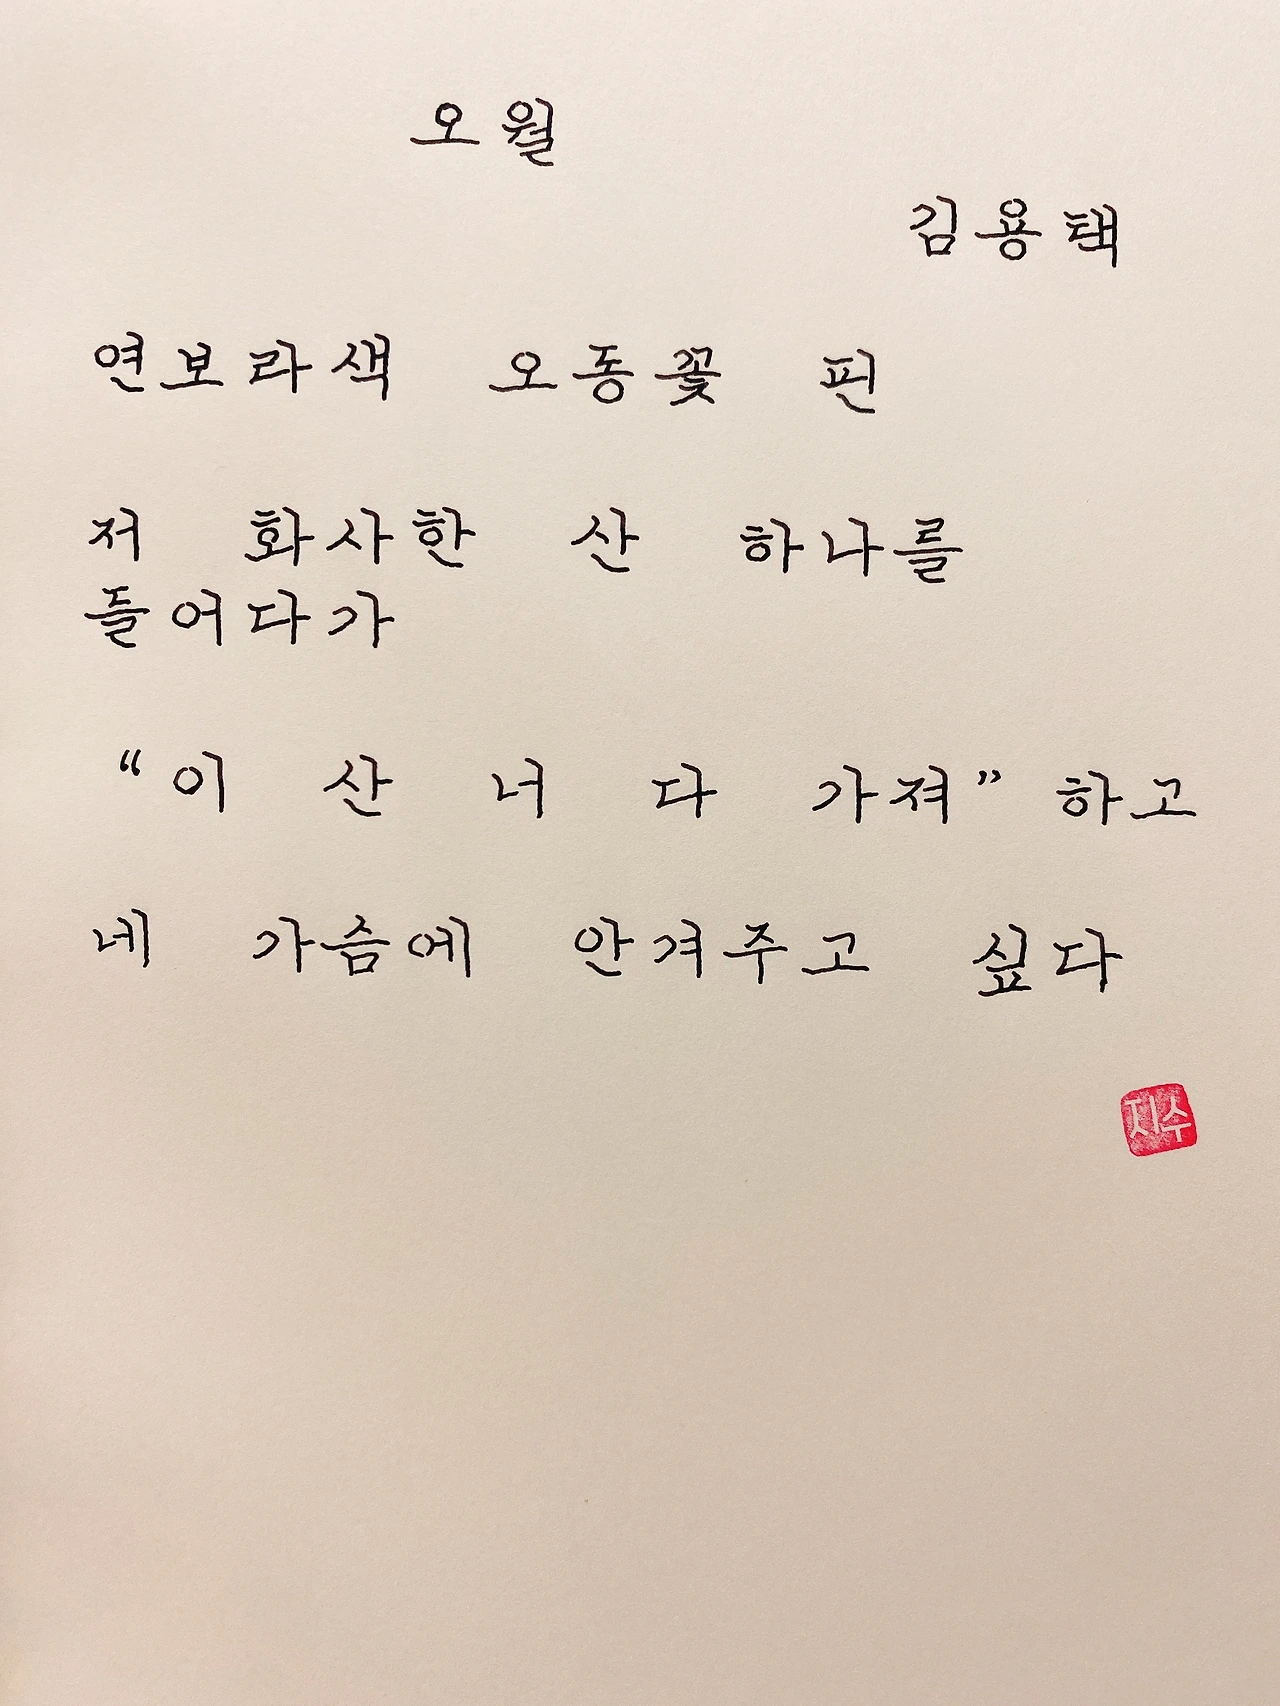 오월
김용택
연보라색 오동꽃 핀
저 화사한 산 하나를
들어다가
“이 산 너 다 가져” 하고
네 가슴에 안겨주고 싶다
지수